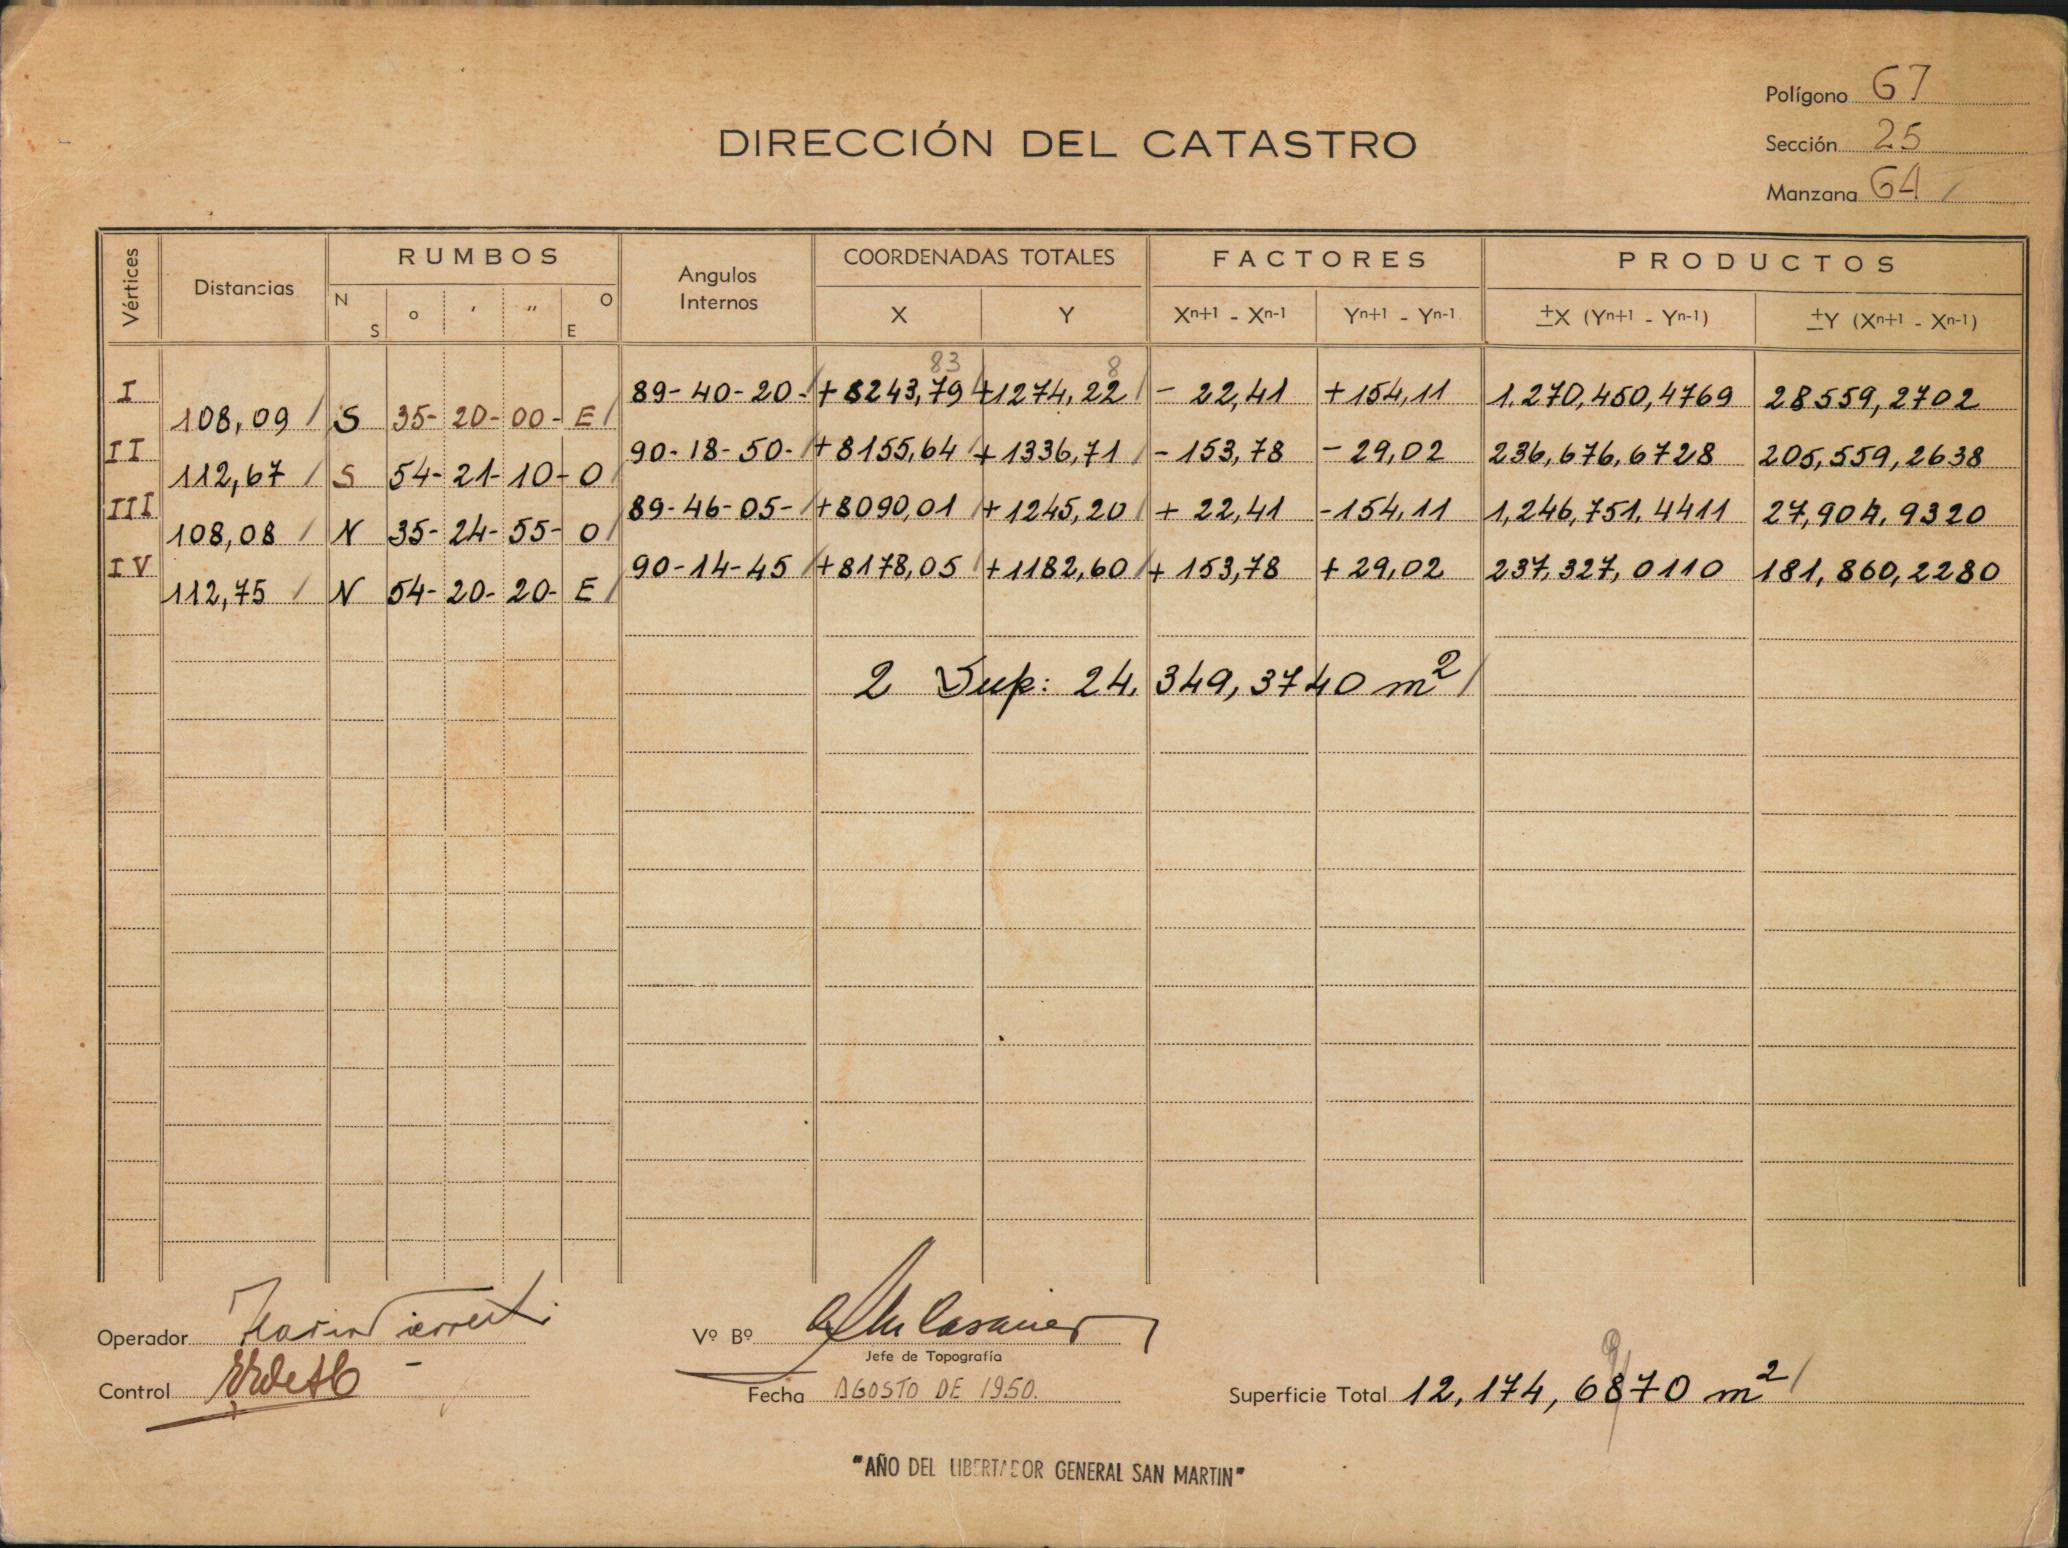 Polígono 67
DIRECCIÓN DEL CATASTRO
Sección 25
Manzana 64
Vértices Distancias RUMBOS Angulos Internos COORDENADAS TOTALES FACTORES PRODUCTOS
N S o ′ ″ O E X Y Xn+1 - Xn-1 Yn+1 - Yn-1 ±X (Yn+1 - Yn-1) ±Y (Xn+1 - Xn-1)
83 8
I 89-40-20- +8243,79 +1274,22 - 22,41 +154,11 1.270,450,4769 28559,2702
108,09 S 35- 20- 00- E
II 90-18-50- +8155,64 +1336,71 -153,78 -29,02 236,676,6728 205,559,2638
112,67 S 54- 21- 10- O
III 89-46-05- +8090,01 +1245,20 + 22,41 -154,11 1,246,751,4411 27,904,9320
108,08 N 35- 24- 55- O
IV 90-14-45 +8178,05 +1182,60 + 153,78 + 29,02 237,327,0110 181,860,2280
112,75 N 54- 20- 20- E
2 Sup: 24,349,3740 m²
Operador
Vº Bº
Jefe de Topografía
Control
Fecha AGOSTO DE 1950.
Superficie Total 12,174,6870 m²
"AÑO DEL LIBERTADOR GENERAL SAN MARTIN"